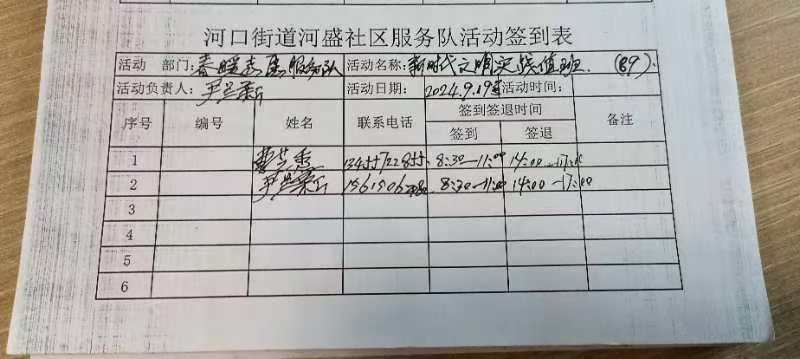 河口街道河盛社区服务队活动签到表
活动 部门: 春暖志愿服务队 活动名称: 新时代文明实践值班 (89)
活动负责人: 尹 活动日期: 2024.9.19 活动时间:
序号 编号 姓名 联系电话 签到签退时间 备注
签到 签退
1 8:30-11:00 14:00-17:00
2 尹 8:30-11:00 14:00-17:00
3
4
5
6